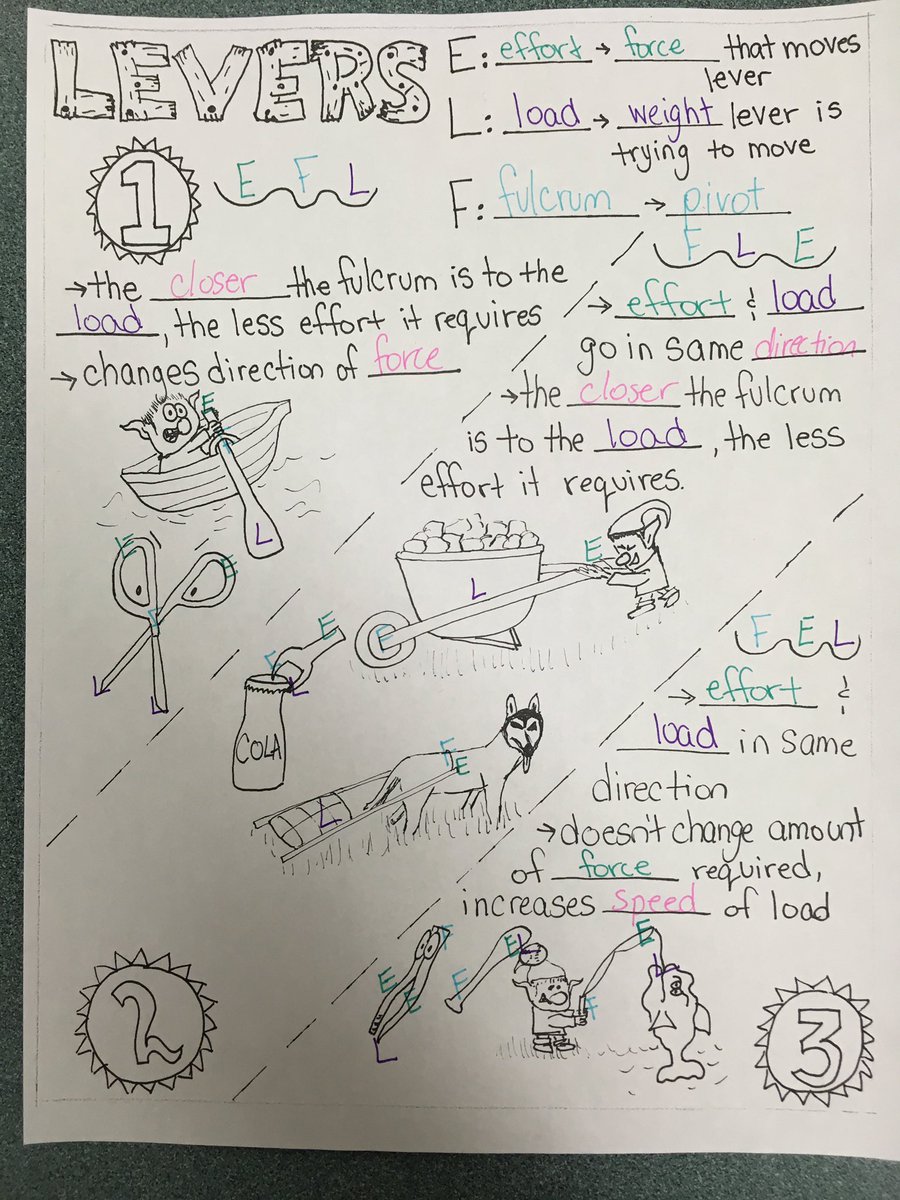 LEVERS
E: effort → force that moves
lever
L: load → weight lever is
trying to move
F: fulcrum → pivot
1
E F L
→ the closer the fulcrum is to the
load, the less effort it requires
→ changes direction of force
E
F
L
E
E
F
L
L
F L E
→ effort & load
go in same direction
→ the closer the fulcrum
is to the load, the less
effort it requires.
E
L
F
E
F
L
COLA
F
E
L
2
F E L
→ effort &
load in same
direction
→ doesn't change amount
of force required,
increases speed of load
F
E
E
L
E
L
F
E
L
F
3